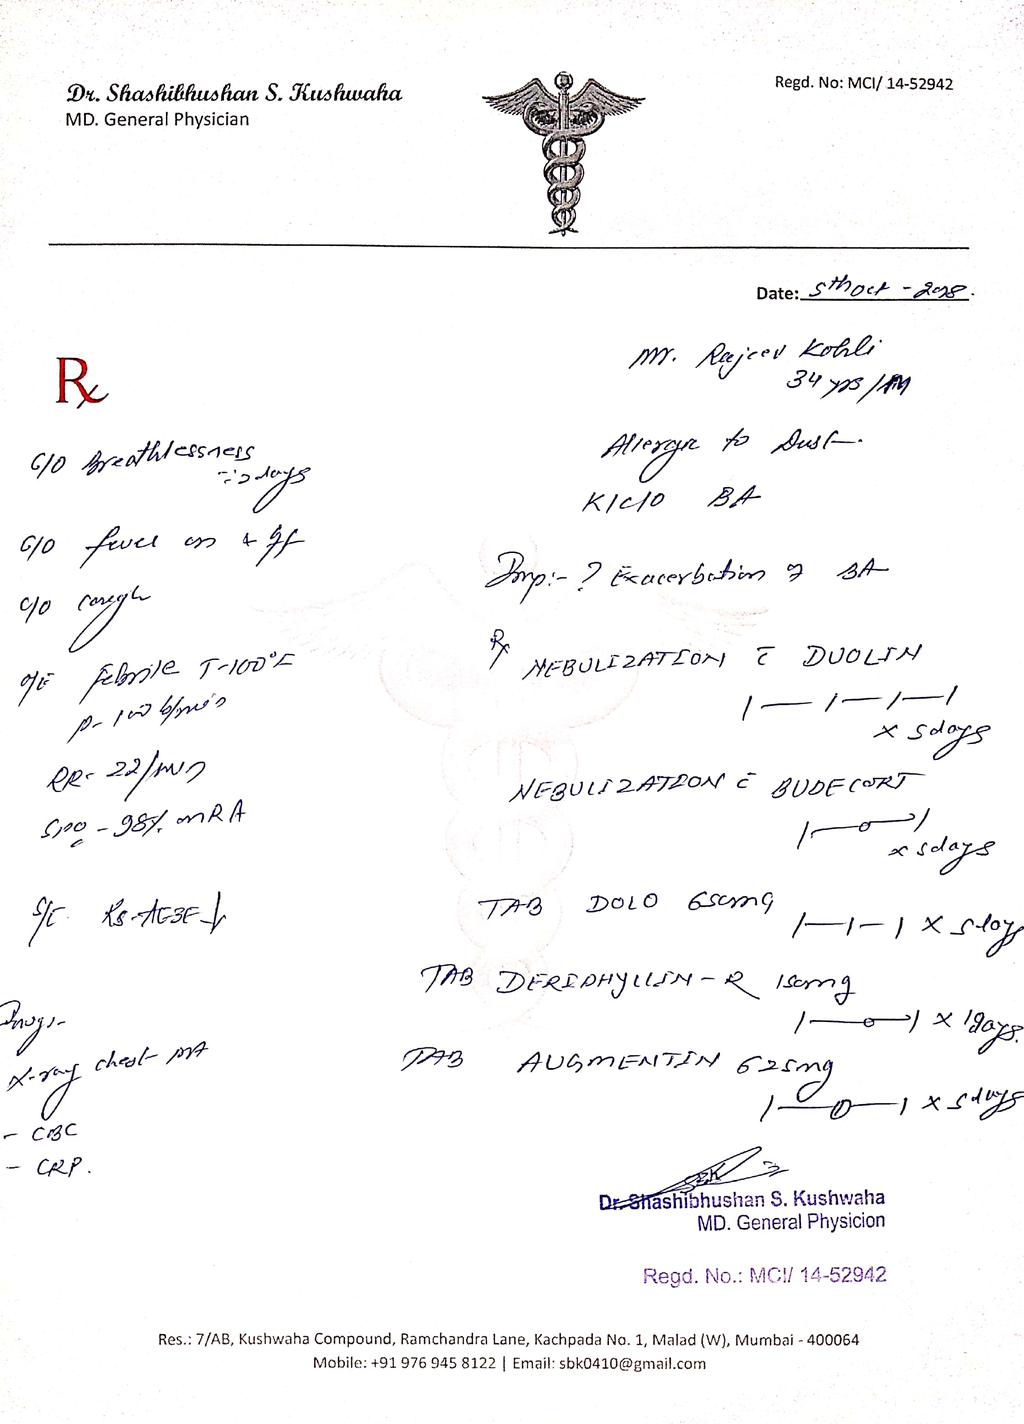 Dr. Shashibhushan S. Kushwaha
MD. General Physician
Regd. No: MCI/ 14-52942
Date: 5th Oct - 2018.
Mr. Rajeev Kohli
34 yrs / M
Rx
C/O Breathlessness
days
C/O fever on & off
C/O cough
O/E febrile T-100°F
P- 100 b/min
RR- 22/min
SPO2 - 98% on RA
S/E RS-AEBE ↓
Invg:-
X-ray chest PA
- CBC
- CRP.
Allergic to Dust.
K/C/O BA
Imp:- ? Exacerbation of BA
Rx NEBULIZATION c̄ DUOLIN
1 — 1 — 1 — 1
x 5days
NEBULIZATION c̄ BUDECORT
1 — 0 — 1
x 5days
TAB DOLO 650mg
1 — 1 — 1 x 5days
TAB DERIPHYLLIN-R 150mg
1 — 0 — 1 x days.
TAB AUGMENTIN 625mg
1 — 0 — 1 x 5days
Dr. Shashibhushan S. Kushwaha
MD. General Physicion
Regd. No.: MCI/ 14-52942
Res.: 7/AB, Kushwaha Compound, Ramchandra Lane, Kachpada No. 1, Malad (W), Mumbai - 400064
Mobile: +91 976 945 8122 | Email: sbk0410@gmail.com